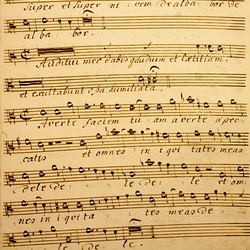 super et super nivem dealbabor de
alba bor.
Auditui meo dabis gaudium et lætitiam,
et exultabunt ossa humiliata.
Averte faciem tuam averte a pec
catis et omnes iniquitates meas
dele dele dele et om
nes iniquita tes meas de
le dele.